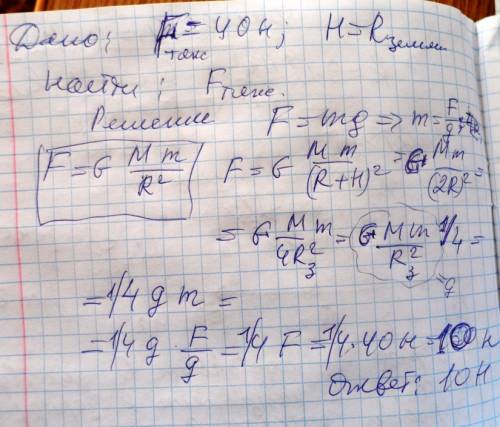 Дано: Fтяж = 40 Н; H = Rземли
Найти: Fтяж.
Решение F = mg => m = F/g
F = G Mm/R² F = G Mm/(R+H)² = G Mm/(2R)² =
= G Mm/4Rз² = G Mm/Rз² 1/4 =
= g
= 1/4 g m =
= 1/4 g · F/g = 1/4 F = 1/4 · 40 Н = 10 Н
Ответ: 10 Н